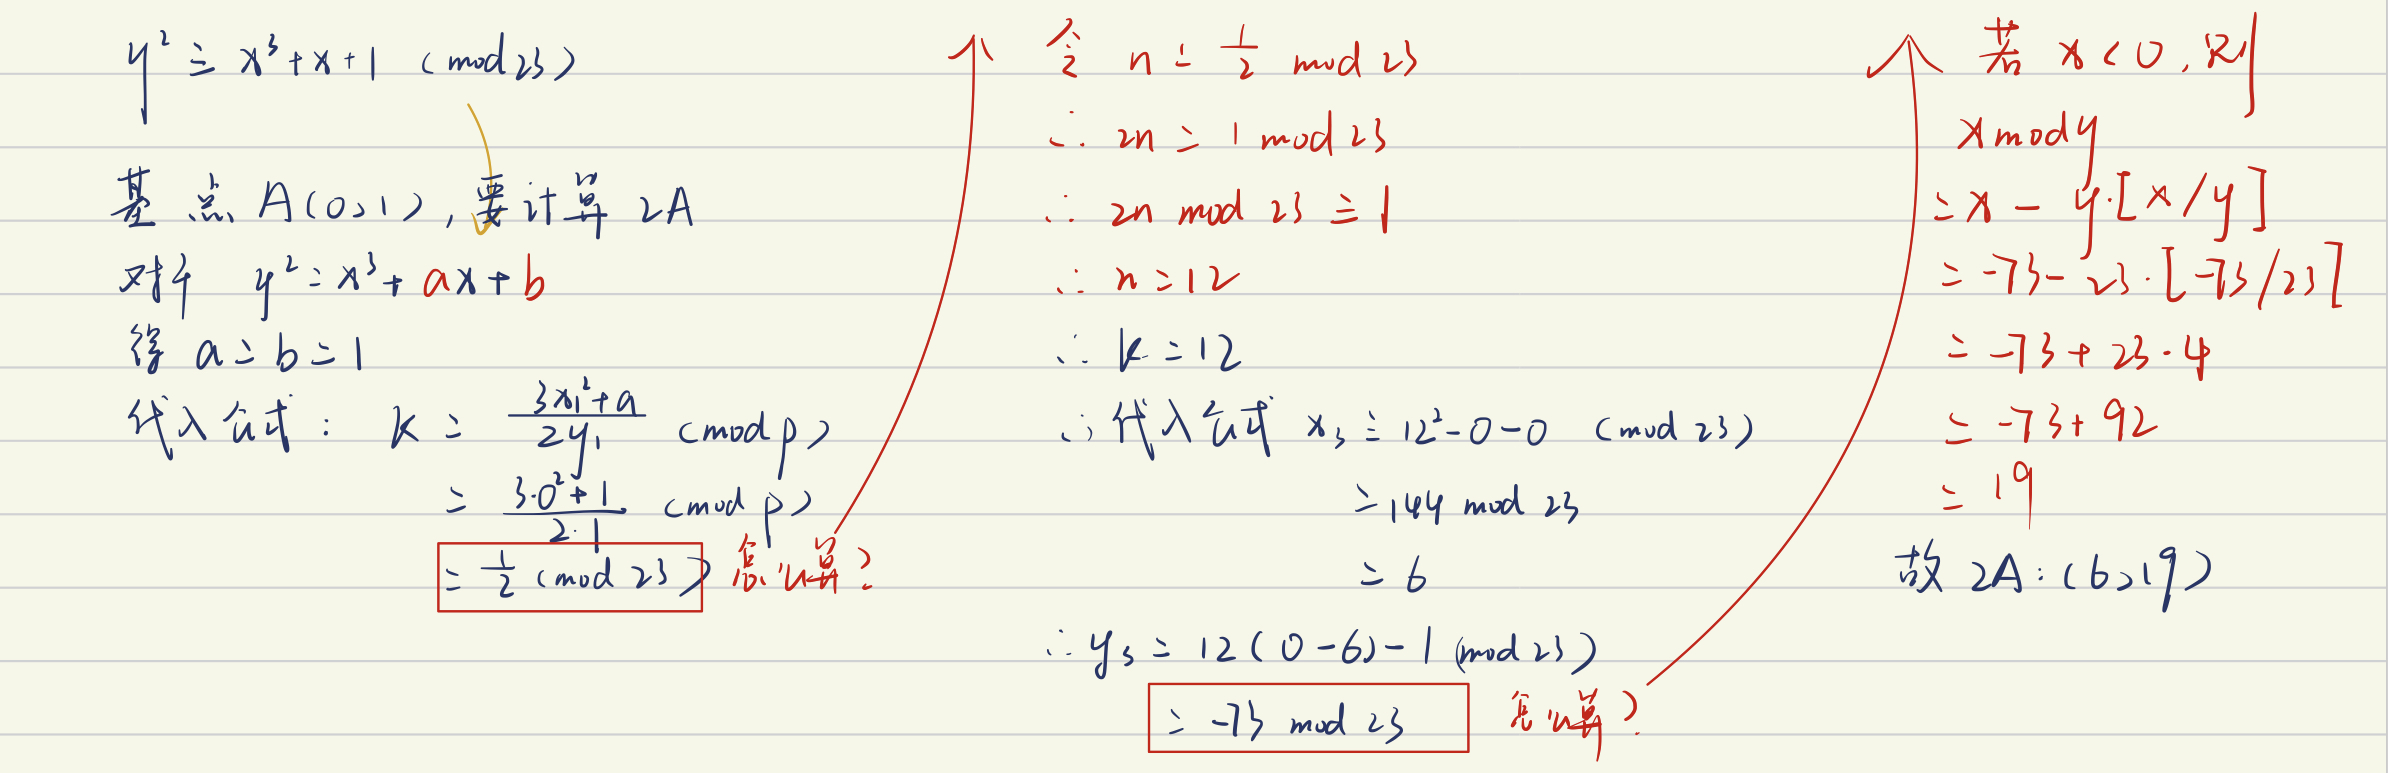 y² ≡ x³+x+1 (mod 23)
基点 A(0,1), 要计算 2A
对于 y² = x³ + ax + b
得 a = b = 1
代入公式: k = (3x₁²+a)/(2y₁) (mod p)
= (3·0²+1)/(2·1) (mod p)
= 1/2 (mod 23) 怎么算?
令 n = 1/2 mod 23
∴ 2n = 1 mod 23
∴ 2n mod 23 ≡ 1
∴ n = 12
∴ k = 12
∴ 代入公式 x₃ ≡ 12²-0-0 (mod 23)
= 144 mod 23
= 6
∴ y₃ = 12(0-6)-1 (mod 23)
= -73 mod 23 怎么算?
若 x<0, 则
x mod y
= x - y·[x/y]
= -73 - 23·[-73/23]
= -73 + 23·4
= -73 + 92
= 19
故 2A: (6,19)